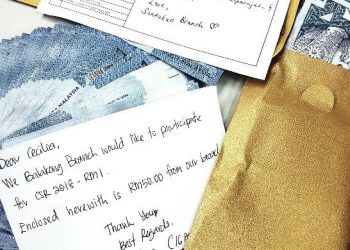 Love,
Sandakan Branch ♡
MALAYSIA
Dear Cecilia,
We Balakong Branch would like to participate
for CSR 2018 - RM1.
Enclosed herewith is RM50.00 from our branch
Thank You
Best Regards.